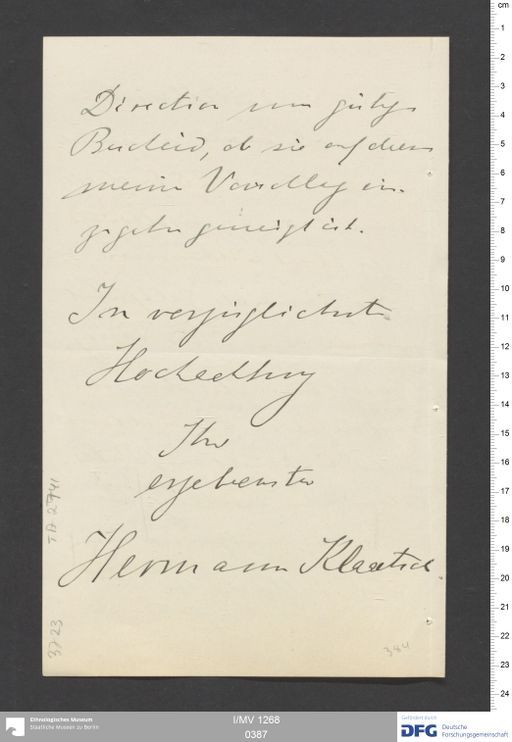 Direction um gütigen
Bescheid, ob sie auf diesen
meinen Vorschlag ein-
zugehen geneigt ist.
In vorzüglichster
Hochachtung
Ihr
ergebenster
Hermann Klaatsch.
TD 2941
3723
384
cm
1
2
3
4
5
6
7
8
9
10
11
12
13
14
15
16
17
18
19
20
21
22
23
24
Ethnologisches Museum
Staatliche Museen zu Berlin
I/MV 1268
0387
Gefördert durch
DFG
Deutsche
Forschungsgemeinschaft